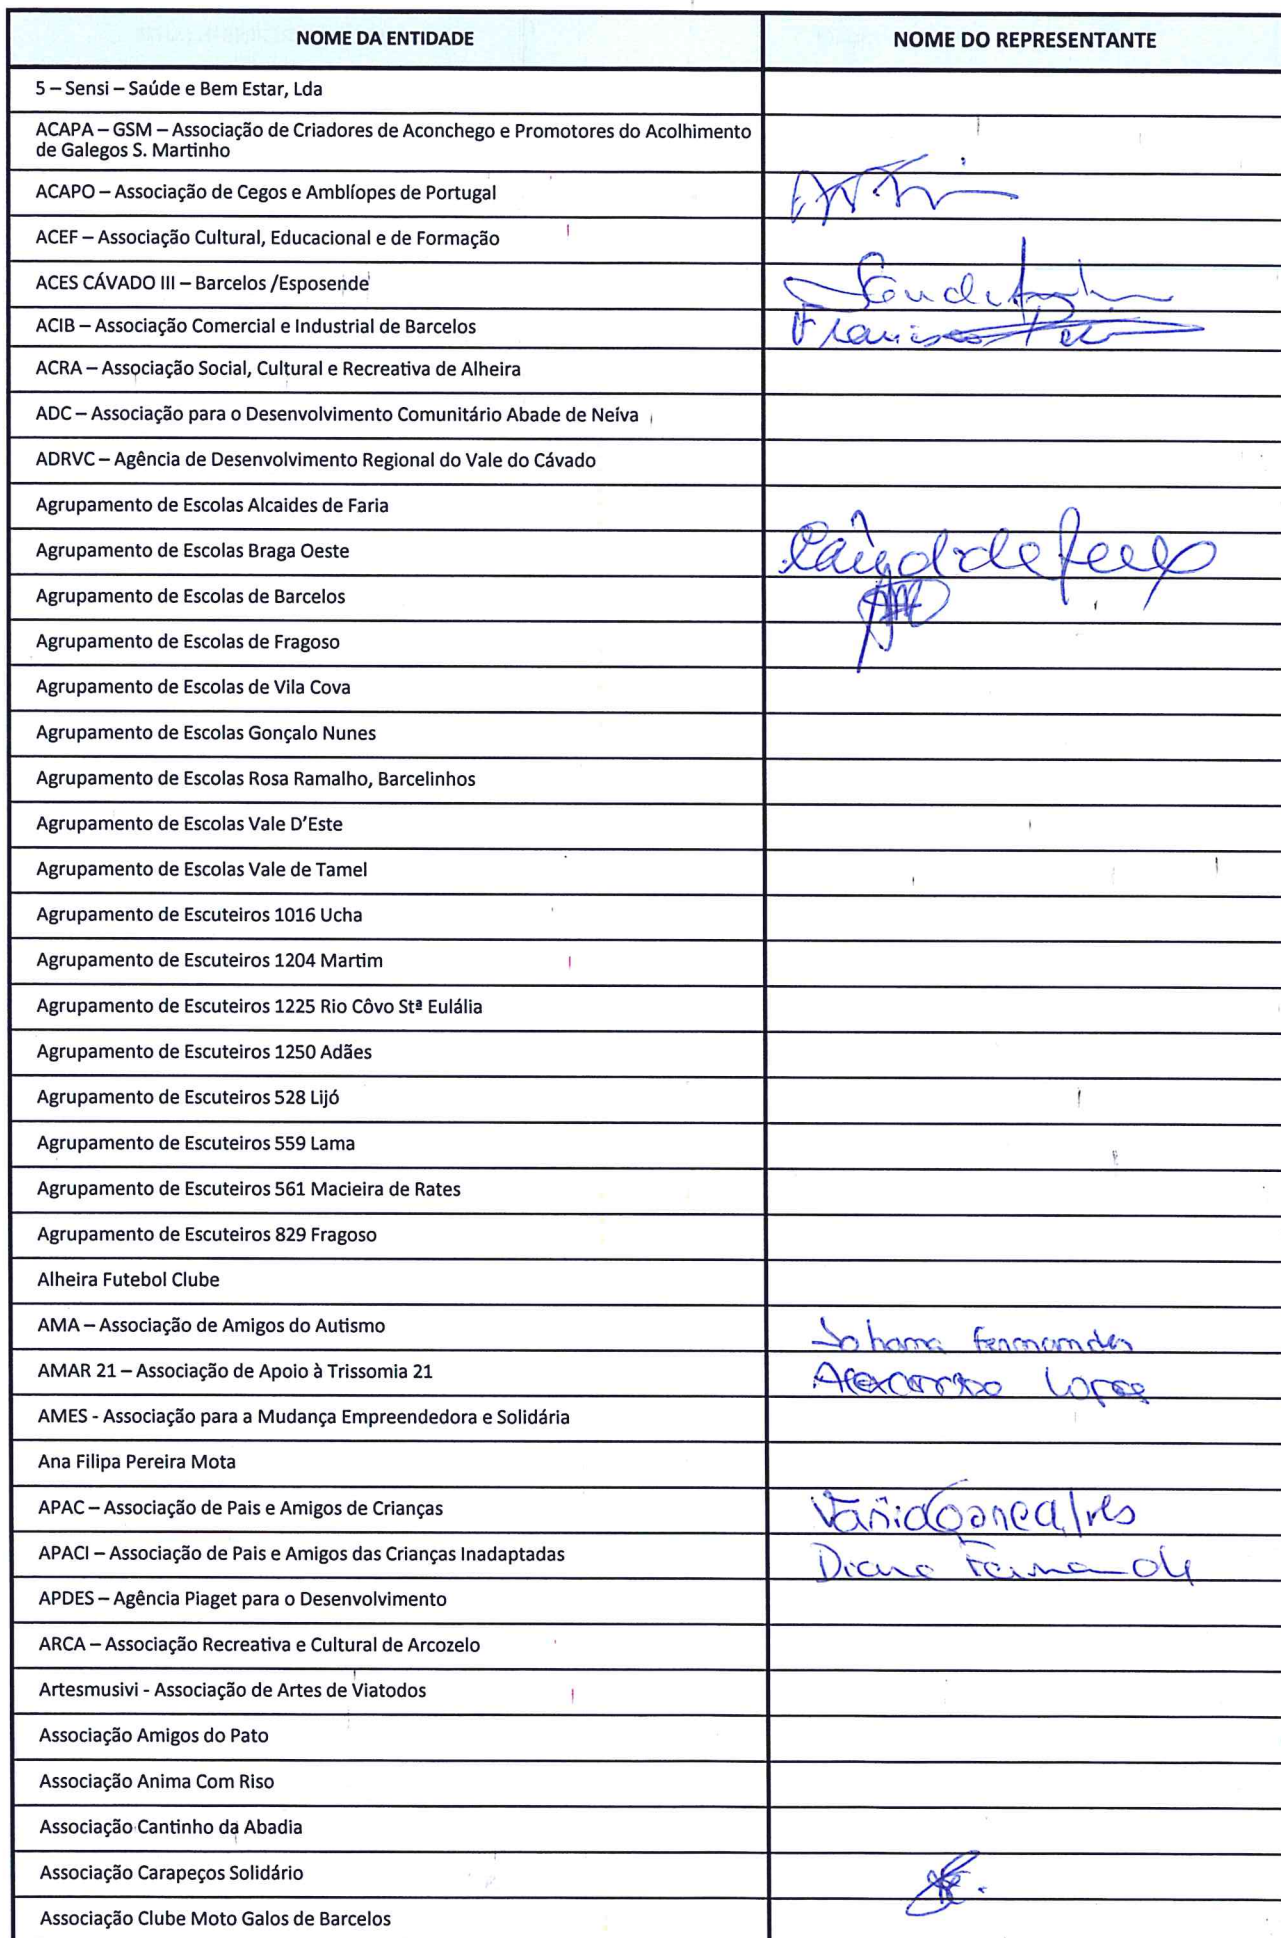 NOME DA ENTIDADE NOME DO REPRESENTANTE
5 – Sensi – Saúde e Bem Estar, Lda
ACAPA – GSM – Associação de Criadores de Aconchego e Promotores do Acolhimento
de Galegos S. Martinho
ACAPO – Associação de Cegos e Amblíopes de Portugal
ACEF – Associação Cultural, Educacional e de Formação
ACES CÁVADO III – Barcelos /Esposende
ACIB – Associação Comercial e Industrial de Barcelos
ACRA – Associação Social, Cultural e Recreativa de Alheira
ADC – Associação para o Desenvolvimento Comunitário Abade de Neíva
ADRVC – Agência de Desenvolvimento Regional do Vale do Cávado
Agrupamento de Escolas Alcaides de Faria
Agrupamento de Escolas Braga Oeste
Agrupamento de Escolas de Barcelos
Agrupamento de Escolas de Fragoso
Agrupamento de Escolas de Vila Cova
Agrupamento de Escolas Gonçalo Nunes
Agrupamento de Escolas Rosa Ramalho, Barcelinhos
Agrupamento de Escolas Vale D'Este
Agrupamento de Escolas Vale de Tamel
Agrupamento de Escuteiros 1016 Ucha
Agrupamento de Escuteiros 1204 Martim
Agrupamento de Escuteiros 1225 Rio Côvo Stª Eulália
Agrupamento de Escuteiros 1250 Adães
Agrupamento de Escuteiros 528 Lijó
Agrupamento de Escuteiros 559 Lama
Agrupamento de Escuteiros 561 Macieira de Rates
Agrupamento de Escuteiros 829 Fragoso
Alheira Futebol Clube
AMA – Associação de Amigos do Autismo Fernandes
AMAR 21 – Associação de Apoio à Trissomia 21 Lopes
AMES - Associação para a Mudança Empreendedora e Solidária
Ana Filipa Pereira Mota
APAC – Associação de Pais e Amigos de Crianças Vânia Gonçalves
APACI – Associação de Pais e Amigos das Crianças Inadaptadas Diana Fernandes
APDES – Agência Piaget para o Desenvolvimento
ARCA – Associação Recreativa e Cultural de Arcozelo
Artesmusivi - Associação de Artes de Viatodos
Associação Amigos do Pato
Associação Anima Com Riso
Associação Cantinho da Abadia
Associação Carapeços Solidário
Associação Clube Moto Galos de Barcelos